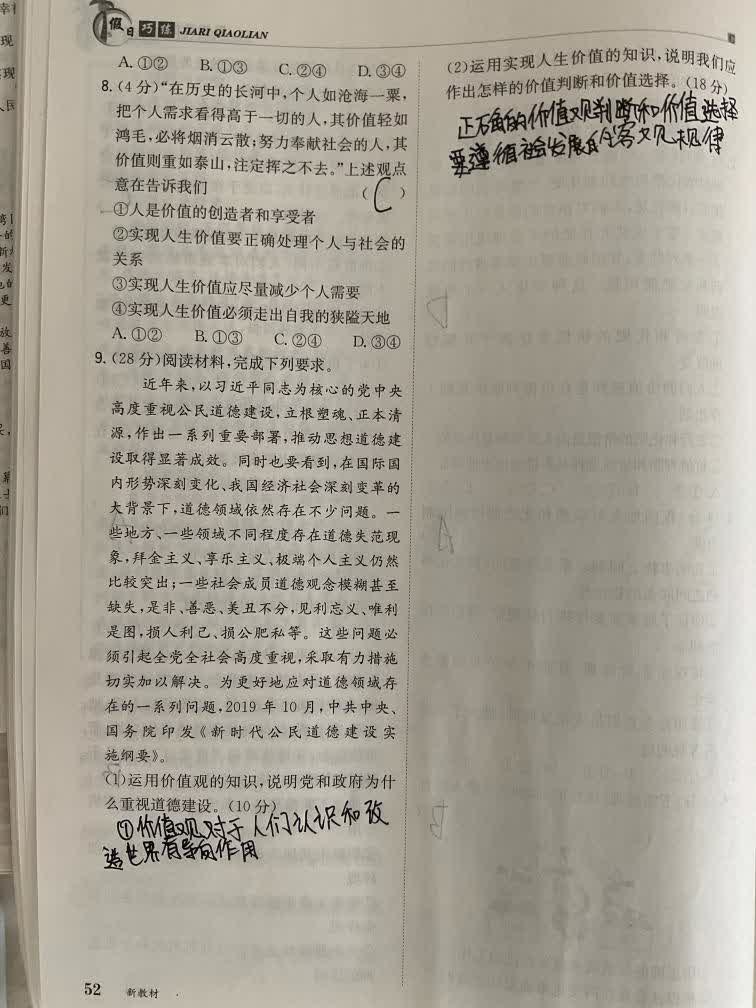 假日巧练 JIARI QIAOLIAN
A. ①② B. ①③ C. ②④ D. ③④
8. (4 分)“在历史的长河中,个人如沧海一粟,
把个人需求看得高于一切的人,其价值轻如
鸿毛,必将烟消云散;努力奉献社会的人,其
价值则重如泰山,注定挥之不去。”上述观点
意在告诉我们 ( C )
①人是价值的创造者和享受者
②实现人生价值要正确处理个人与社会的
关系
③实现人生价值应尽量减少个人需要
④实现人生价值必须走出自我的狭隘天地
A. ①② B. ①③ C. ②④ D. ③④
9. (28 分)阅读材料,完成下列要求。
近年来,以习近平同志为核心的党中央
高度重视公民道德建设,立根塑魂、正本清
源,作出一系列重要部署,推动思想道德建
设取得显著成效。同时也要看到,在国际国
内形势深刻变化、我国经济社会深刻变革的
大背景下,道德领域依然存在不少问题。一
些地方、一些领域不同程度存在道德失范现
象,拜金主义、享乐主义、极端个人主义仍然
比较突出;一些社会成员道德观念模糊甚至
缺失,是非、善恶、美丑不分,见利忘义、唯利
是图,损人利己、损公肥私等。这些问题必
须引起全党全社会高度重视,采取有力措施
切实加以解决。为更好地应对道德领域存
在的一系列问题,2019 年 10 月,中共中央、
国务院印发《新时代公民道德建设实
施纲要》。
(1)运用价值观的知识,说明党和政府为什
么重视道德建设。(10 分)
①价值观对于人们认识和改
造世界有导向作用
52 新教材
(2)运用实现人生价值的知识,说明我们应
作出怎样的价值判断和价值选择。(18 分)
正确的价值观判断和价值选择
要遵循社会发展的客观规律